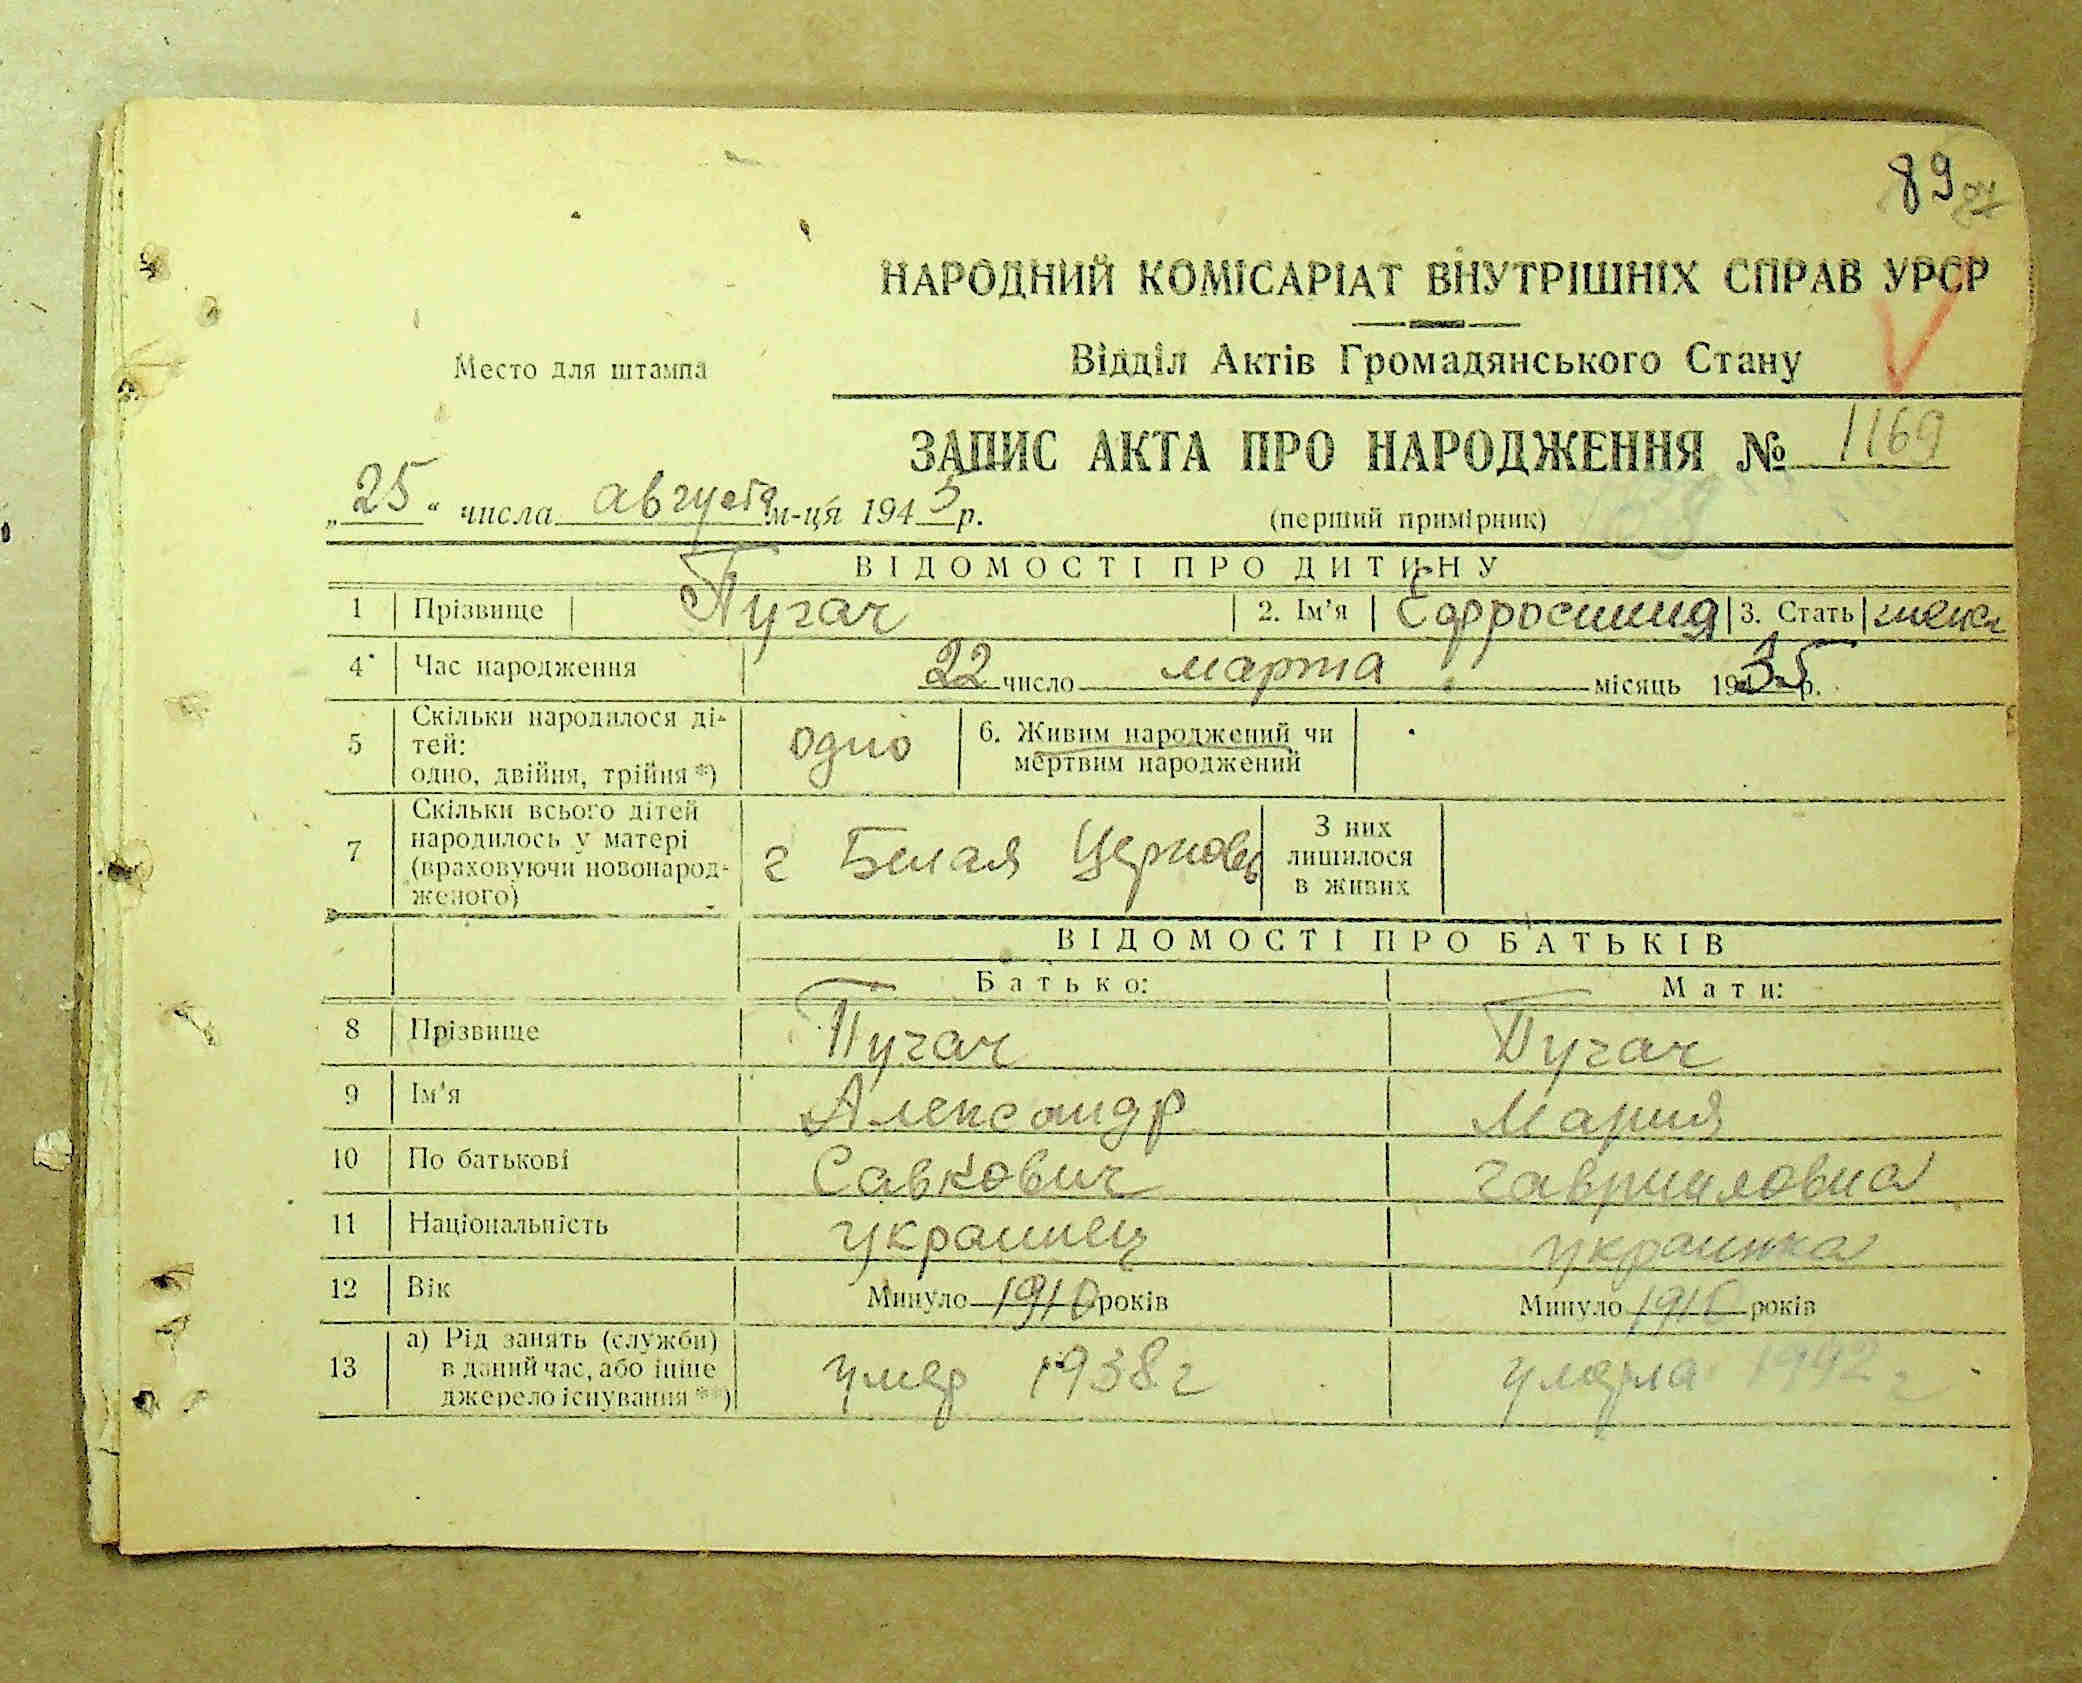 89
НАРОДНИЙ КОМІСАРІАТ ВНУТРІШНІХ СПРАВ УРСР
Место для штампа
Відділ Актів Громадянського Стану
ЗАПИС АКТА ПРО НАРОДЖЕННЯ № 1169
„25“ числа августа м-ця 1945 р.
(перший примірник)
ВІДОМОСТІ ПРО ДИТИНУ
1 Прізвище Пугач 2. Ім'я Ефросиния 3. Стать женск
4 Час народження 22 число марта місяць 1935 р.
5 Скільки народилося дітей: одно, двійня, трійня *) одно 6. Живим народжений чи мертвим народжений
7 Скільки всього дітей народилось у матері (враховуючи новонародженого) г Белая Церковь З них лишилося в живих
ВІДОМОСТІ ПРО БАТЬКІВ
Батько: Мати:
8 Прізвище Пугач Пугач
9 Ім'я Александр Мария
10 По батькові Савкович Гавриловна
11 Національність украинец украинка
12 Вік Минуло 1910 років Минуло 1910 років
13 а) Рід занять (служби) в даний час, або інше джерело існування **) умер 1938 г умерла г